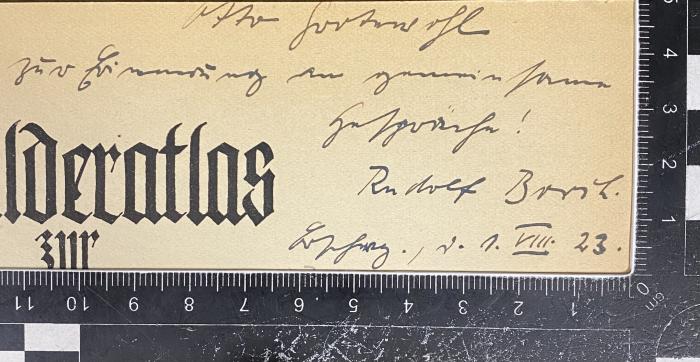 Otto Grotewohl
zur Erinnerung an gemeinsame
Gespräche!
Rudolf Borch.
lderatlas
zur
Bschwg., d. 1. VIII. 23.
11 10 9 8 7 6 5 4 3 2 1 0 cm
5
4
3
2
1